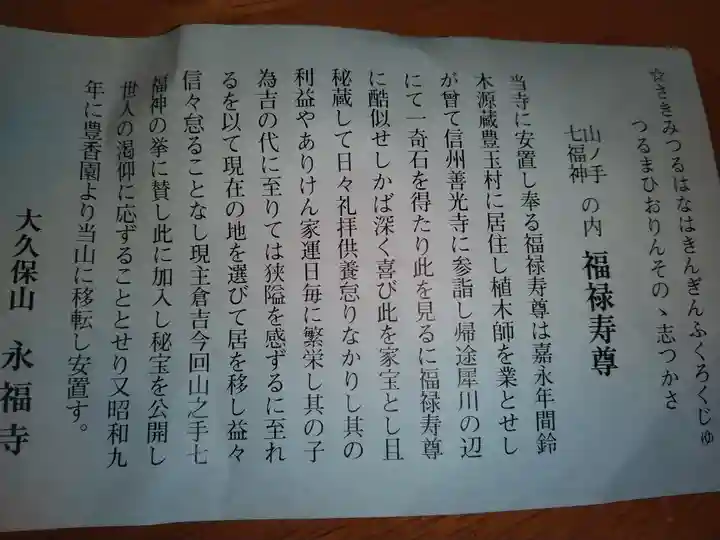 ☆さきみつるはなはきんぎんふくろくじゅ
つるまひおりんそのゝ志つかさ
山ノ手
七福神
の内
福禄寿尊
当寺に安置し奉る福禄寿尊は嘉永年間鈴
木源蔵豊玉村に居住し植木師を業とせし
が曾て信州善光寺に参詣し帰途犀川の辺
にて一奇石を得たり此を見るに福禄寿尊
に酷似せしかば深く喜び此を家宝とし且
秘蔵して日々礼拝供養怠りなかりし其の
利益やありけん家運日毎に繁栄し其の子
為吉の代に至りては狭隘を感ずるに至れ
るを以て現在の地を選びて居を移し益々
信々怠ることなし現主倉吉今回山之手七
福神の挙に賛し此に加入し秘宝を公開し
世人の渇仰に応ずることとせり又昭和九
年に豊香園より当山に移転し安置す。
大久保山 永福寺